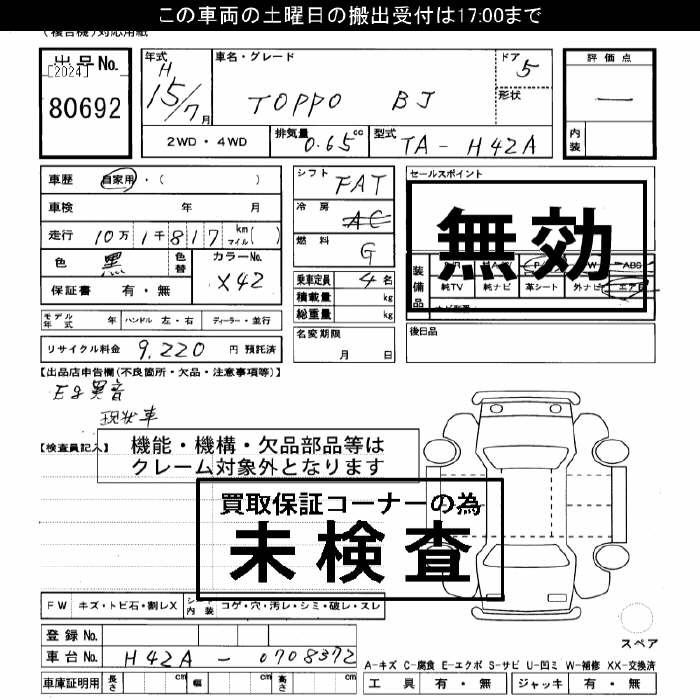 この車両の土曜日の搬出受付は17:00まで
(複合機)対応用紙
出品No.
[2024]
80692
年式 H 15/7月
車名・グレード TOPPO BJ
ドア 5
形状
評価点
一
内装
2WD・4WD
排気量 0.65cc
型式 TA-H42A
車歴 自家用・( )
車検 年 月
走行 10万1千817 km マイル( )
色 黒 色替
カラーNo. X42
保証書 有・無
シフト FAT
冷房 AC
燃料 G
乗車定員 4名
積載量 kg
総重量 kg
セールスポイント
無効
装備品
純TV 純ナビ 革シート 外ナビ エアB
ABS
モデル年式 年 ハンドル 左・右 ディーラー・並行
名変期限 月 日
後日品
リサイクル料金 9,220 円 預託済
【出品店申告欄(不良箇所・欠品・注意事項等)】
Eg異音
現状車
【検査員記入】
機能・機構・欠品部品等は
クレーム対象外となります
買取保証コーナーの為
未検査
FW キズ・トビ石・割レX
シート内装 コゲ・穴・汚レ・シミ・破レ・スレ
登録No.
車台No. H42A-0708372
スペア
A-キズ C-腐食 E-エクボ S-サビ U-凹ミ W-補修 XX-交換済
車庫証明用 長さ cm 幅 cm 高さ cm
工具 有・無 ジャッキ 有・無